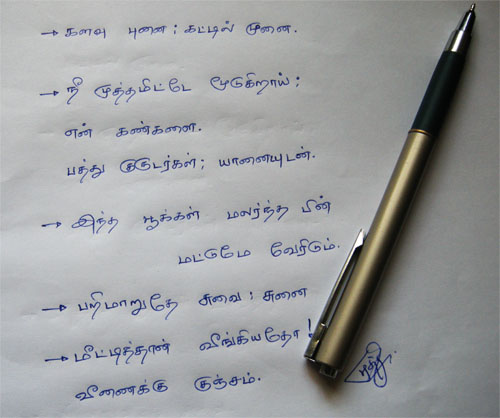 → களவு புனை; கட்டில் முனை.
→ நீ முத்தமிட்டே மூடுகிறாய்;
என் கண்களை.
பத்து குருடர்கள்; யானையுடன்.
→ இந்த பூக்கள் மலர்ந்த பின்
மட்டுமே வேரிடும்.
→ பரிமாறுதே சுவை; சுனை
→ மீட்டித்தான் வீங்கியதோ!
வீணைக்கு குஞ்சம்.